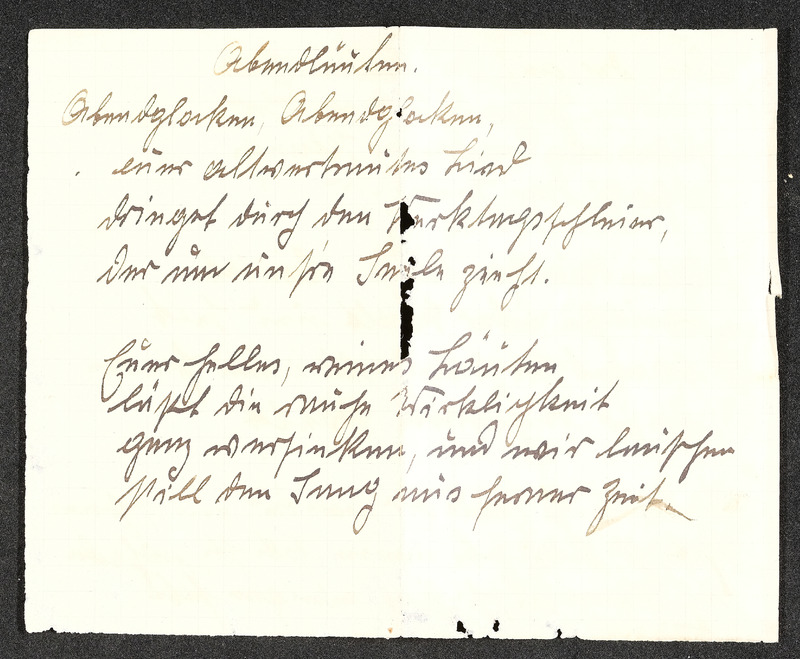 Abendläuten.
Abendglocken, Abendglocken,
euer altvertrautes Lied
dringet durch den Werktagsschleier,
der um unsre Seele zieht.
Euer helles, reines Läuten
läßt die rauhe Wirklichkeit
ganz versinken, und wir lauschen
still dem Sang aus ferner Zeit.